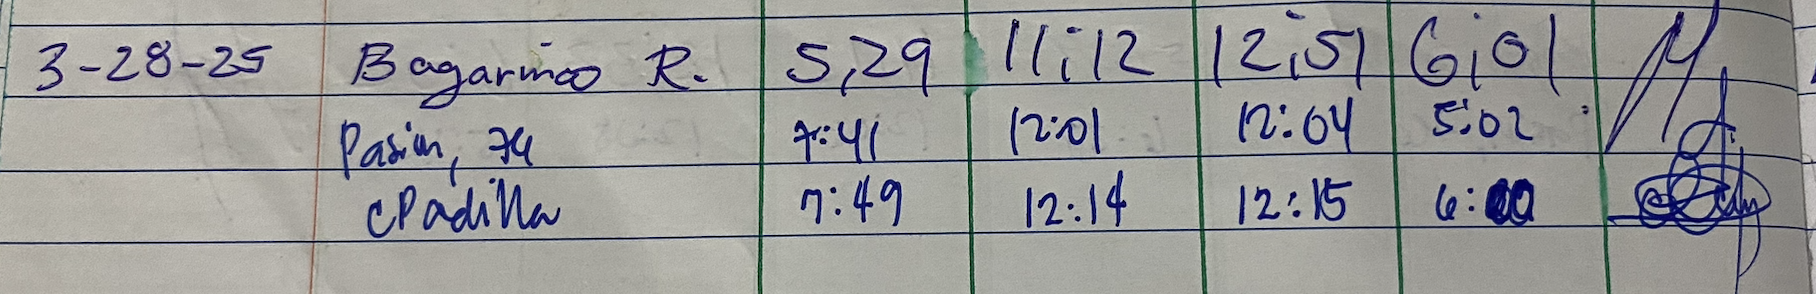 3-28-25 Bagarinao R. 5,29 11:12 12:51 6:01
Pasion, 7:41 12:01 12:04 5:02
CPadilla 7:49 12:14 12:15 6:00